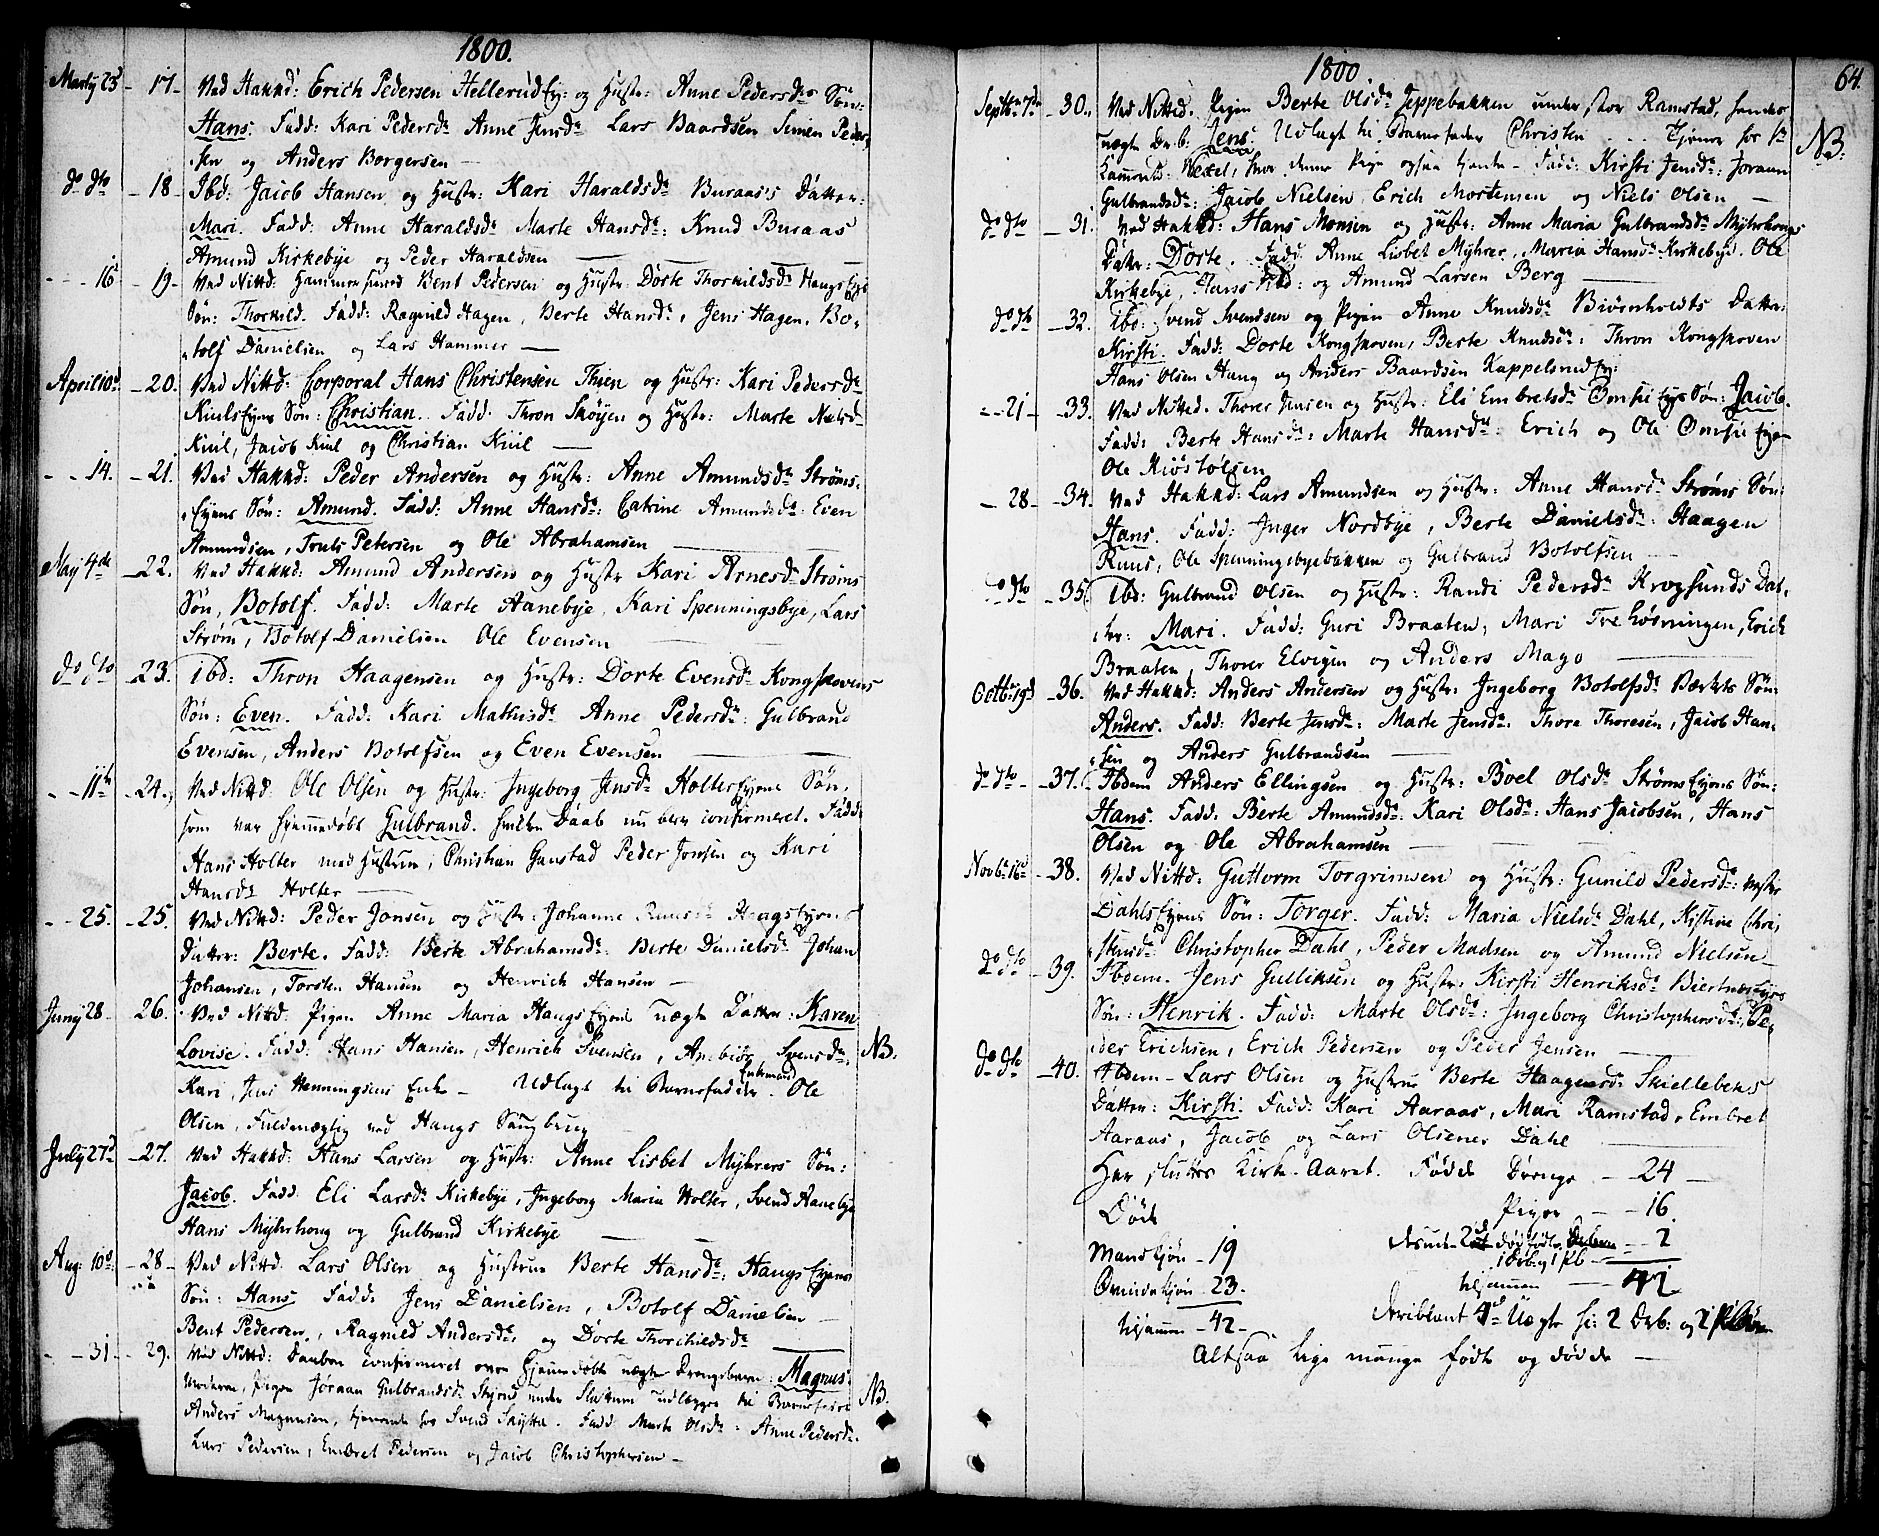 1800.
Marty 23 - 17 - Ved Hakkd: Erich Pedersen Hellerud Ey: og Hustr: Anne Pedersdr Søn:
Hans. Fadd: Kari Pedersdr Anne Jensdr Lars Baardsen Simen Peder,
sen og Anders Borgersen -
do dto - 18 - Ibd: Jacob Hansen og Hustr: Kari Haraldsdr Buraas's Datter:
Mari. Fadd: Anne Haraldsdr Marte Hansdr: Knud Buraas
Amund Kirkebye og Peder Haraldsen
- - - 16 - 19 - Ved Nittd: Hammersmed Bent Pedersen og Hustr: Dorte Thorkildsdr Haugs Eye
Søn: Thorkild. Fadd: Ragnild Hagen, Berte Hansdr, Jens Hagen, Bo,
tolf Danielsen og Lars Hammer -
April 10d - 20. Ved Nittd: Corporal Hans Christensen Thien og Hustr: Kari Pedersdr
Kiuls Eyens Søn: Christian. Fadd: Thron Skøyen og Hustr: Marte Nielsd
Kiul, Jacob Kiul og Christian Kiul -
- - 14. - 21. Ved Hakkd: Peder Andersen og Hustr: Anne Amundsdr Strøms,
Eyens Søn: Amund. Fadd: Anne Hansdr: Catrine Amundsdr: Even
Amundsen, Truls Petersen og Ole Abrahamsen
May 4de - 22. Ved Hakkd: Amund Andersen og Hustr Kari Arnesdr Strøms
Søn, Botolf. Fadd: Marte Aanebye, Kari Spenningsbye, Lars
Strøm, Botolf Danielsen Ole Evensen
do dto - 23. Ibd: Thron Haagensen og Hustr: Dorte Evensdr Kongskovens
Søn: Even. Fadd: Kari Mathisdr Anne Pedersdr: Gulbrand
Evensen, Anders Botolfsen og Even Evensen
- - 11te - 24. Ved Nittd: Ole Olsen og Hustr: Ingeborg Jensdr Holter Eyene Søn,
som var hjemmedøbt Gulbrand. hvilken Daab nu blev confirmeret. Fadd:
Hans Holter med Hustrue, Christian Gunstad Peder Jonsen og Kari
Hansdr Holter -
- - 25. - 25. Ved Nittd: Peder Jonsen og Hustr: Johanne Haugs Eyens
Datter: Berte. Fadd: Berte Abrahamsdr: Berte Danielsdr Johan
Johansen, Torsten Hansen og Henrich Hansen -
Juny 28 - 26. Ved Nittd: Pigen Anne Maria Haugs Eyens uægte Datter: Karen
Lovise. Fadd: Hans Hansen, Henrich Svensen, Anbiør Svensdr: NB.
Kari, Jens Henningsens Enke - Udlagt til Barnefader Enkemand Ole
Olsen, Fuldmægtig ved Haugs Saugbrug
July 27d - 27. Ved Hakkd: Hans Larsen og Hustr: Anne Lisbet Myhrers Søn:
Jacob. Fadd: Eli Larsdr Kirkebye, Ingeborg Maria Holter, Svend Aanebye
Hans Myhrhoug og Gulbrand Kirkebye
Aug: 10de - 28 - Ved Nittd: Lars Olsen og Hustrue Berte Hansdr: Haugs Eyens
Søn: Hans Fadd: Jens Danielsen, Botolf Danielsen
Bent Pedersen, Ragnild Andersdr, og Dorte Thorchildsdr
- - 31 - 29. Ved Nittd: Daaben confirmeret over hjemmedøbt uægte Drengebarn: Magnus.
Moderen, Pigen Jøraan Gulbrandsdr under udlægger til Barnefader NB.
Anders Magnusen, tjenende hos Svend Fadd: Marte Olsdr: Anne Pedersdr
Lars Pedersen, Embret Pedersen og Jacob Christophersen -
1800 64.
Septbr 7de - 30. Ved Nittd. Pigen Berte Olsdr Jeppebakken under stor Ramstad, hendes
uægte Dr.b: Jens. Udlagt til Barnefader Christen - - - Tjener for Hr NB:
Wexel, hvor denne Pige ogsaa tjente - Fadd: Kirsti Jensdr: Joraan
Gulbrandsdr: Jacob Nielsen, Erich Mortensen og Niels Olsen -
do dto - 31. Ved Hakkd: Hans Monsen og Hustr: Anne Maria Gulbrandsdr Myhrhougs
Datr: Dorte. Fadd: Anne Lisbet Myhrer, Maria Hansdr Kirkebye. Ole
Kirkebye, Hans ibd: og Amund Larsen Berg -
do dto - 32. Ibd: Svend Svendsen og Pigen Anne Knudsdr Biørnholts Datter:
Kirsti. Fadd: Dorte Kongskoven, Berte Knudsdr: Thron Kongskoven
Hans Olsen Haug og Anders Baardsen Kappelsrud Ey:
- - 21 - - 33. Ved Nittd. Thorer Jensen og Hustr: Eli Embretsdr Ømsti Eyes Søn: Jacob.
Fadd: Berte Hansdr: Marte Hansdr: Erich og Ole Eye-
Ole Kiøstølsen
- 28 - - 34. Ved Hakkd: Lars Amundsen og Hustr: Anne Hansdr Strøms Søn:
Hans. Fadd: Inger Nordbye, Berte Danielsdr: Haagen
Ruus, Ole Spenningsbyebakken og Gulbrand Botolfsen -
do dto - 35. Ibd: Gulbrand Olsen og Hustr: Randi Pedersdr Krogsunds Dat,
ter: Mari. Fadd: Guri Braaten, Mari Treløsningen, Erich
Braaten, Thorer Elvigen og Anders Mayo
Octbr: 19d - 36. Ved Hakkd: Anders Andersen og Hustr: Ingeborg Botolfsdr Værkets Søn:
Anders. Fadd: Berte Jensdr: Marte Jensdr: Thore Thoresen, Jacob Han,
sen og Anders Gulbrandsen -
do dto - 37. Ibdem Anders Ellingsen og Hustr: Boel Olsdr Strøms Eyens Søn:
Hans. Fadd: Berte Amundsdr: Kari Olsdr: Hans Jacobsen, Hans
Olsen og Ole Abrahamsen -
Novbr 16d - 38. Ved Nittd: Guttorm Torgrimsen og Hustr: Gunild Pedersdr: vester
Dahls Eyens Søn: Torger. Fadd: Maria Nielsdr Dahl, Kistine Chri,
stensdr Christopher Dahl, Peder Madsen og Amund Nielsen -
do dto - 39. Ibdem. Jens Gulliksen og Hustr: Kirsti Henriksdr Biertnes Eyes
Søn: Henrik. Fadd: Marte Olsdr: Ingeborg Christophersdr: Pe,
der Erichsen, Erich Pedersen og Peder Jensen
do dto - 40. Ibdem - Lars Olsen og Hustrue Berte Haagensdr Skiellebeks
Datter: Kirsti. Fadd: Kari Aaraas, Mari Ramstad, Embret
Aaraas, Jacob og Lars Olsener Dahl
Her sluttes Kirke-Aaret. Fødde Drenge - 24 -
Døde Piger - - 16.
Mandkiøn - 19 desuden 2 dødfødte - - 2
1 Dbb. og 1 Pb
Qvindekiøn - 23. tilsammen - 42
tilsammen - 42 - deriblant 4 Uægte 2 Drb: og 2
Altsaa lige mange fødte og døde -